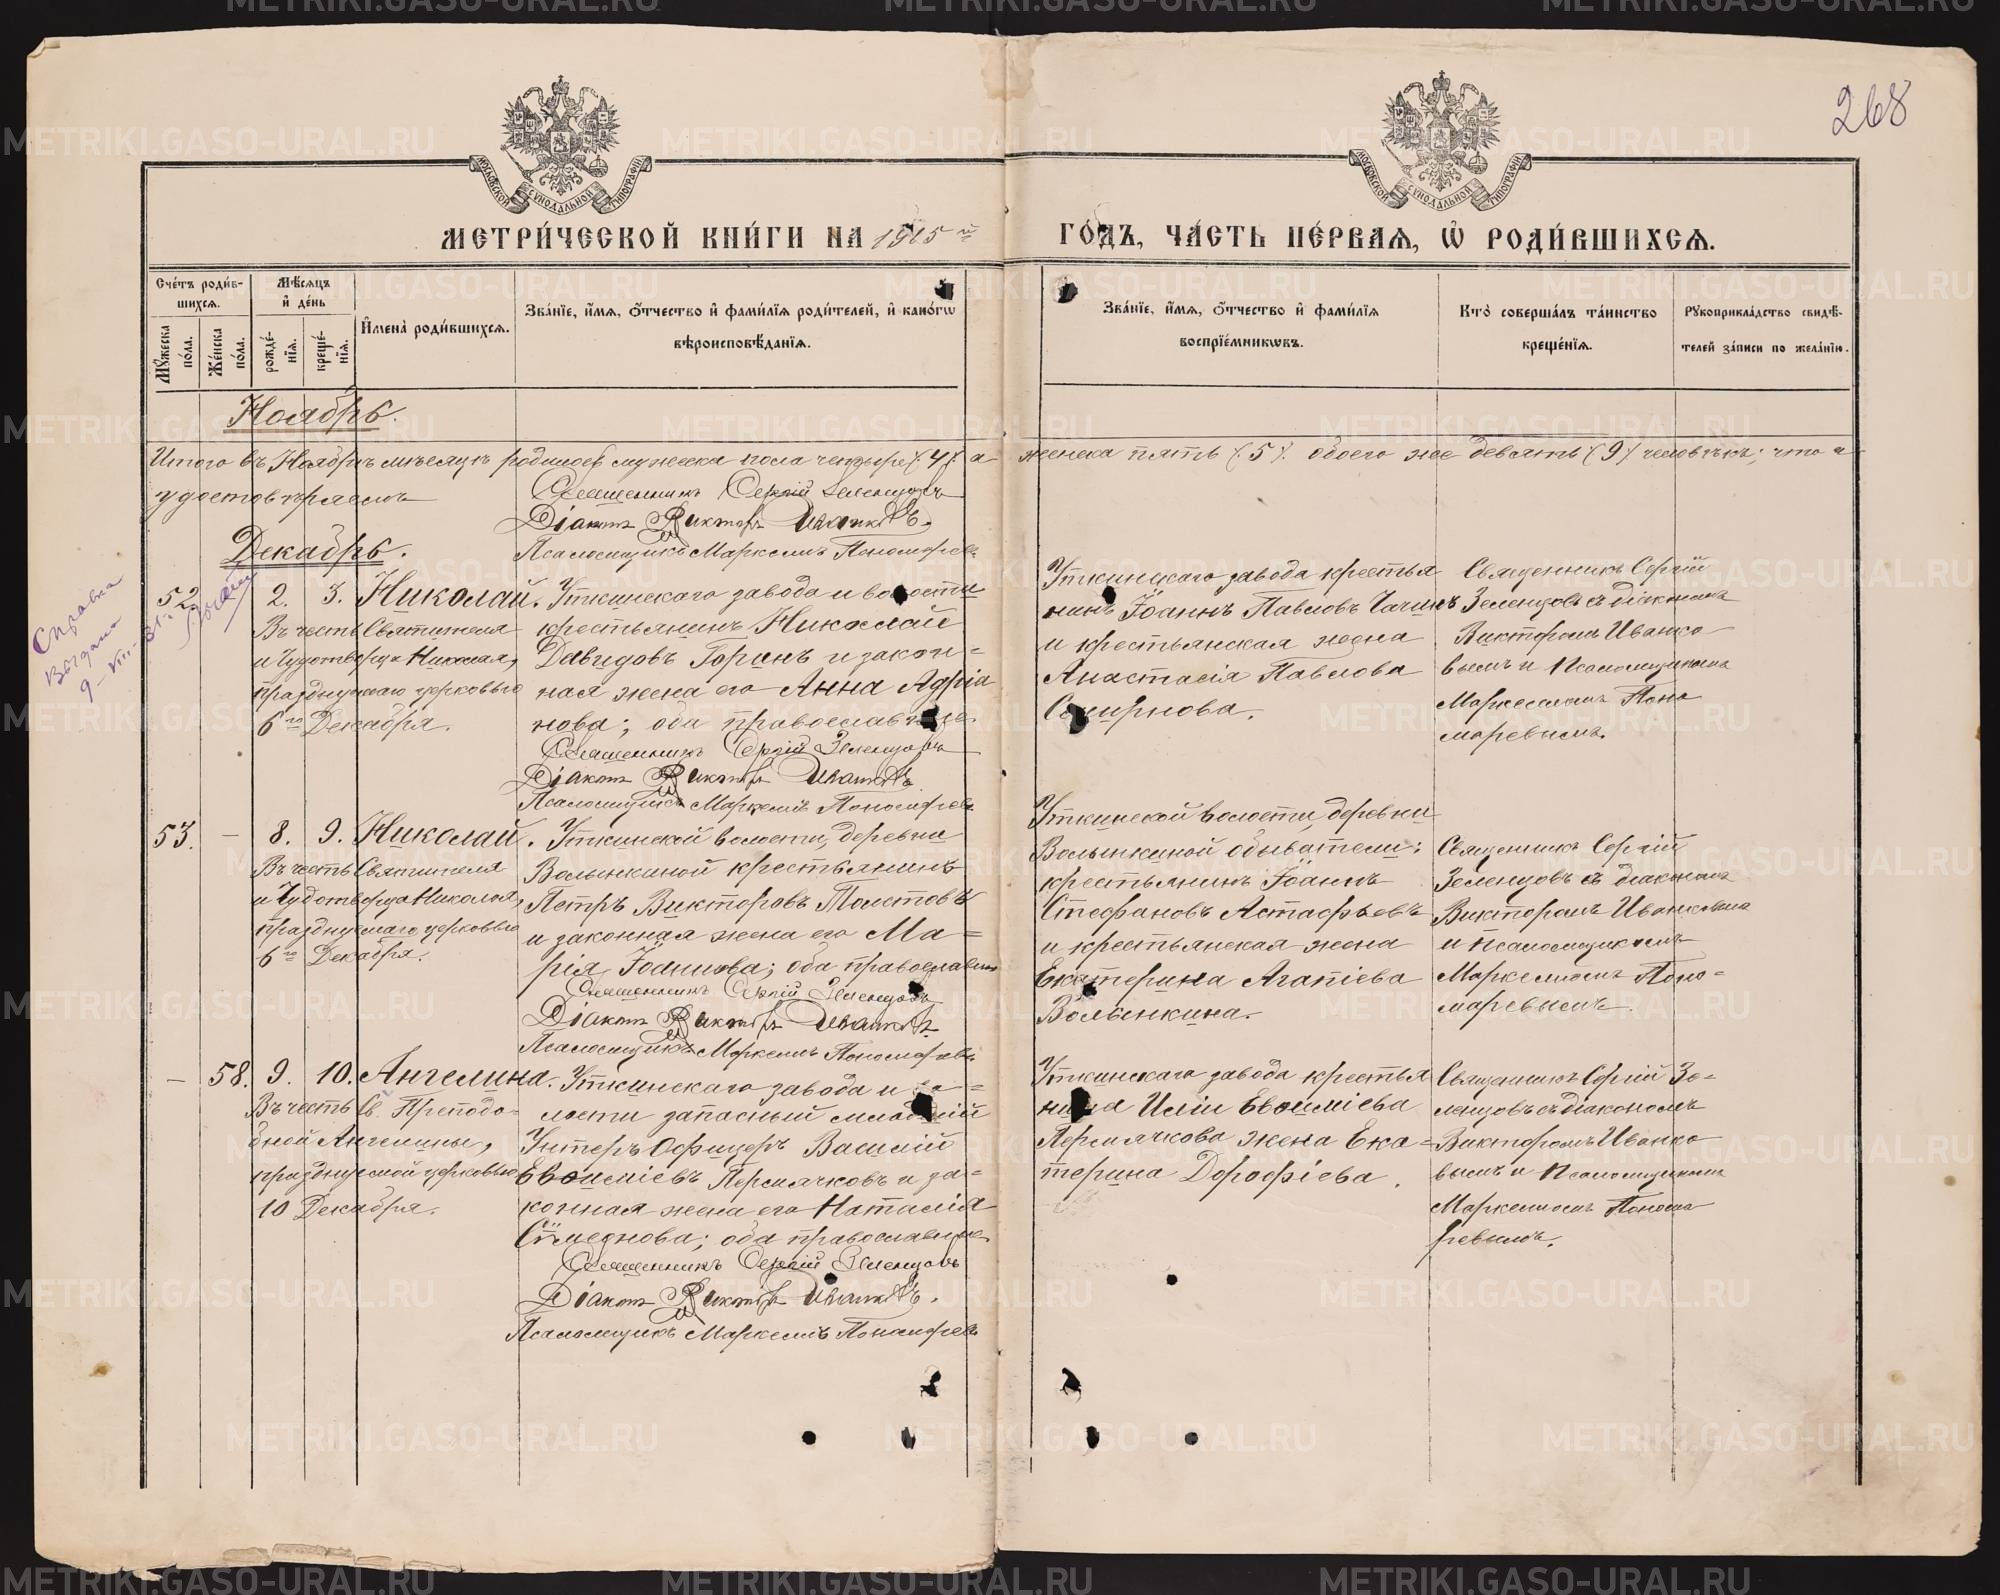 268
МОСКОВСКОЙ СУНОДАЛЬНОЙ ТИПОГРАФІИ
МОСКОВСКОЙ СУНОДАЛЬНОЙ ТИПОГРАФІИ
МЕТРИ́ЧЕСКОЙ КНИ́ГИ НА 1915 й ГО́ДЪ, ЧА́СТЬ ПЕ́РВАѦ, Ѡ РОДИ́ВШИХСѦ.
Сче́тъ роди́в-
шихсѧ.
Мꙋжеска по́ла.
Же́нска по́ла.
Мѣ́сѧцъ
и де́нь
рожде́-
нїѧ.
креще́-
нїѧ.
И́мена̀ роди́вшихсѧ.
Зва́нїе, и́мѧ, ѻ́тчество и фами́лїѧ роди́телей, и како́гѡ
вѣроисповѣ́данїѧ.
Зва́нїе, и́мѧ, ѻ́тчество и фами́лїѧ
воспрїе́мникѡвъ.
Кто̀ соверша́лъ та́инство
креще́нїѧ.
Рꙋкоприкла́дство свидѣ́-
телей за́писи по жела́нїю.
Ноябрь.
Итого въ Ноябрѣ мѣсяцѣ родилось мужеска пола четыре (4) а женска пять (5) обоего же девять (9) человѣкъ; что и
удостовѣряемъ
Священникъ Сергій Зеленцовъ
Діаконъ Викторъ Иванковъ.
Псаломщикъ Маркеллъ Пономаревъ
Декабрь.
Справка
выдана
9-VIII-31 г.
52. 2. 3. Николай.
Въ честь Святителя
и Чудотворца Николая,
празднуемаго церковью
6го Декабря.
Уткинскаго завода и волости
крестьянинъ Николай
Давидовъ Горинъ и закон-
ная жена его Анна Адріа
нова; оба православные.
Священникъ Сергій Зеленцовъ
Діаконъ Викторъ Иванковъ
Псаломщикъ Маркеллъ Пономаревъ
Уткинскаго завода крестья
нинъ Іоаннъ Павловъ Чагинъ
и крестьянская жена
Анастасія Павлова
Смирнова.
Священникъ Сергій
Зеленцовъ съ діакономъ
Викторомъ Иванко
вымъ и Псаломщикомъ
Маркелломъ Поно
маревымъ.
53. — 8. 9. Николай.
Въ честь Святителя
и Чудотворца Николая,
празднуемаго церковью
6го Декабря.
Уткинской волости, деревни
Волынкиной крестьянинъ
Петръ Викторовъ Толстовъ
и законная жена его Ма-
рія Іоаннова; оба православные
Священникъ Сергій Зеленцовъ
Діаконъ Викторъ Иванковъ
Псаломщикъ Маркеллъ Пономаревъ
Уткинской волости, деревни
Волынкиной обыватели:
крестьянинъ Іоаннъ
Стефановъ Астафьевъ
и крестьянская жена
Екатерина Агапіева
Волынкина.
Священникъ Сергій
Зеленцовъ съ діакономъ
Викторомъ Иванковымъ
и Псаломщикомъ
Маркелломъ Поно-
маревымъ.
— 58. 9. 10. Ангелина.
Въ честь Св. Преподо-
бной Ангелины,
празднуемой церковью
10 Декабря.
Уткинскаго завода и во-
лости запасный младшій
Унтеръ Офицеръ Василій
Евѳиміевъ Пермячковъ и за-
конная жена его Наталія
Сімеонова; оба православные
Священникъ Сергій Зеленцовъ
Діаконъ Викторъ Иванковъ.
Псаломщикъ Маркеллъ Пономаревъ
Уткинскаго завода крестья
нина Иліи Евѳиміева
Пермячкова жена Ека-
терина Дорофіева.
Священникъ Сергій Зе-
ленцовъ съ діакономъ
Викторомъ Иванко
вымъ и Псаломщикомъ
Маркелломъ Понома
ревымъ.
METRIKI.GASO-URAL.RU